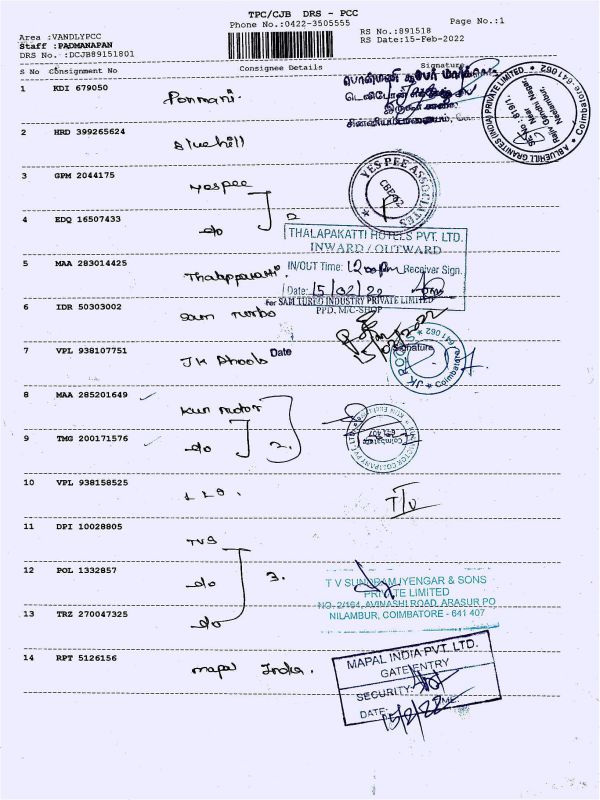 TPC/CJB DRS - PCC
Phone No.:0422-3505555
Page No.:1
Area :VANDLYPCC
RS No.:891518
Staff :PADMANAPAN
RS Date:15-Feb-2022
DRS No. :DCJB89151801
S No Consignment No Consignee Details Signature
1 KDI 679050 Ponmani.
பொன்மணி சூப்பர் மார்க்கெட்
A BLUEHILL GRANITES (INDIA) PRIVATE LIMITED
Coimbatore-641 062
SF.No.: 819/1
Near
Rajiv Gandhi Nagar,
Neelambur,
2 HRD 399265624 Bluehill
3 GPM 2044175 yespee
YES PEE ASSOCIATES
CBE-62
4 EDQ 16507433 do 2
THALAPAKATTI HOTELS PVT. LTD.
INWARD / OUTWARD
5 MAA 283014425 Thalappakatti
IN/OUT Time: 12:00pm Receiver Sign.
Date: 15/02/22
6 IDR 50303002 Sam Turbo
For SAM TURBO INDUSTRY PRIVATE LIMITED
PPD, M/C-SHOP
7 VPL 938107751 JK Roofs
Date Signature
JK ROOFS
Coimbatore 641 062
8 MAA 285201649 Kun motor
9 TMG 200171576 do 2.
KUN MOTOR COMPANY PVT LTD
Coimbatore
641 407
10 VPL 938158525
11 DPI 10028805 TVS
12 POL 1332857 do 3.
T V SUNDRAM IYENGAR & SONS
PRIVATE LIMITED
NO. 2/164, AVINASHI ROAD, ARASUR PO
NILAMBUR, COIMBATORE - 641 407
13 TRZ 270047325 do
14 RPT 5126156 mapal India.
MAPAL INDIA PVT. LTD.
GATE ENTRY
SECURITY:
DATE: 15/2/22 TIME: